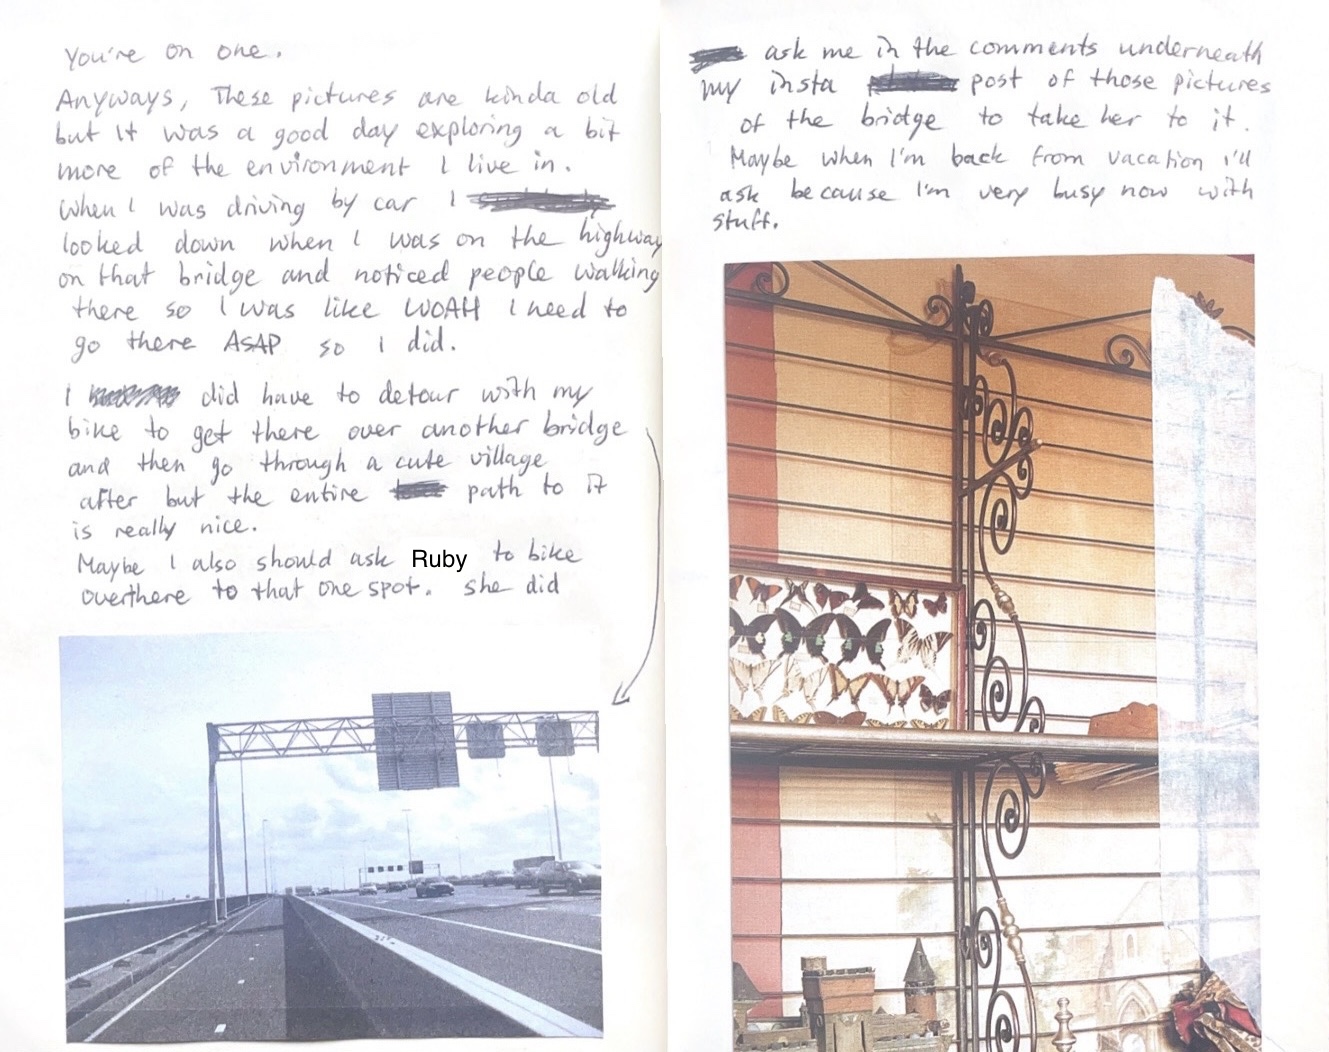 You're on one.
Anyways, These pictures are kinda old
but it was a good day exploring a bit
more of the environment I live in.
When I was driving by car I
looked down when I was on the highway
on that bridge and noticed people walking
there so I was like WOAH I need to
go there ASAP so I did.
I did have to detour with my
bike to get there over another bridge
and then go through a cute village
after but the entire path to it
is really nice.
Maybe I also should ask Ruby to bike
overthere to that one spot. She did
ask me in the comments underneath
my insta post of those pictures
of the bridge to take her to it.
Maybe when I'm back from vacation i'll
ask because I'm very busy now with
stuff.